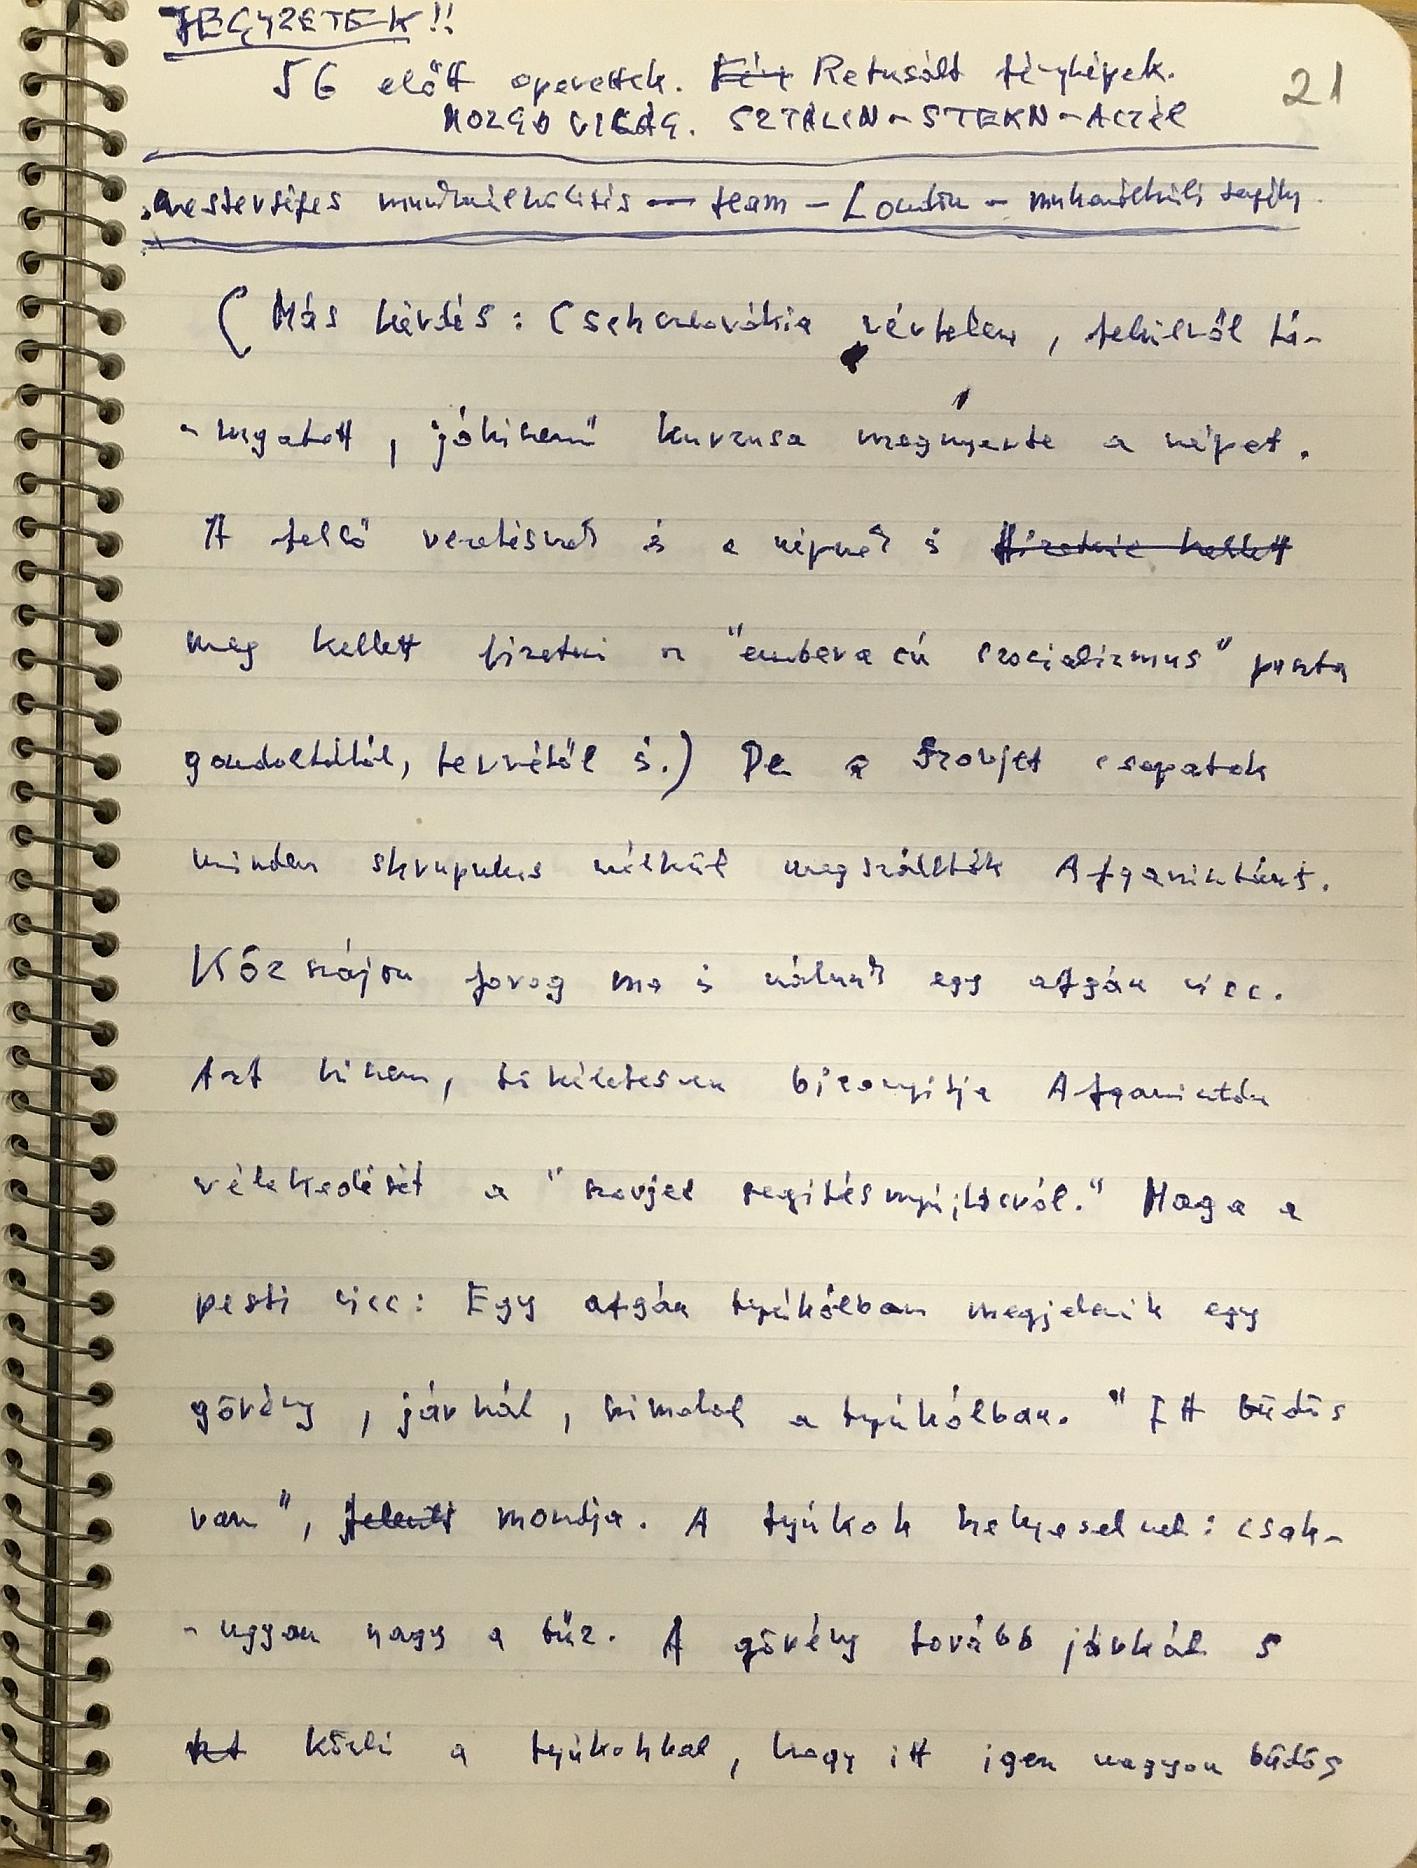 JEGYZETEK!!
21
56 előtt operettek. Fén Retusált fényképek.
MOZGÓ VILÁG. SZTÁLIN - STERN - ACZÉL
mesterséges munkanélküliség — team - London - munkanélküli segély.
(Más kérdés: Csehszlovákia vértelen, felülről tá-
-mogatott, jókinemű kurzusa megnyerte a népet.
A felső vezetésnek és a népnek is fizetnie kellett
meg kellett fizetni az "emberarcú szocializmus" puszta
gondolatától, tervétől is.) De a Szovjet csapatok
minden skrupulus nélkül megszállták Afganisztánt.
Közszájon forog ma is nálunk egy afgán vicc.
Azt hiszem, tökéletesen bizonyítja Afganisztán
vélekedését a "szovjet segítésnyújtásról." Maga a
pesti vicc: Egy afgán tyúkólban megjelenik egy
görény, járkál, szimatol a tyúkólban. "Itt büdös
van", jelenti mondja. A tyúkok helyeselnek: csak-
-ugyan nagy a bűz. A görény tovább járkál s
közli a tyúkokkal, hogy itt igen nagyon büdös